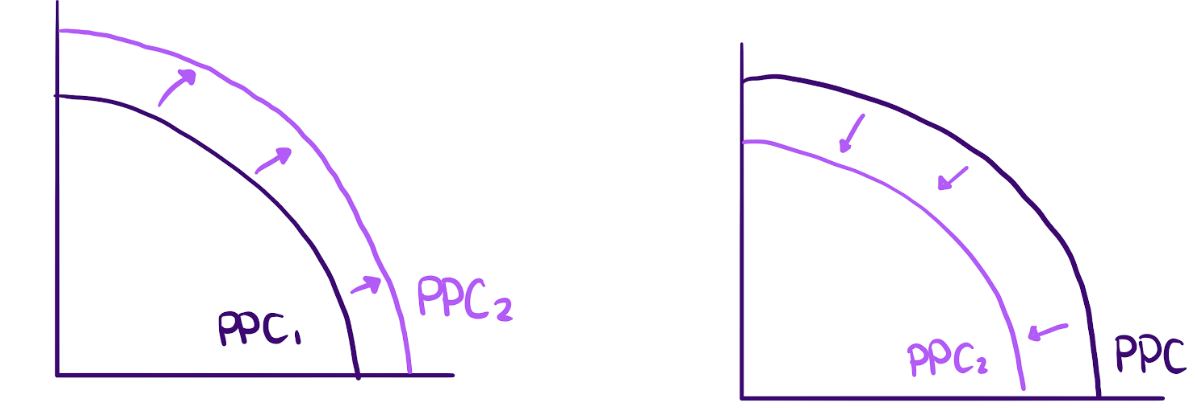 PPC₁
PPC₂
PPC
PPC₂